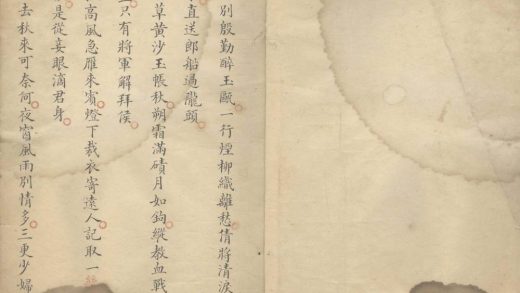 別殷勤醉玉甌一行煙柳織離愁倩將清淚
直送郎船過龍頭
草黃沙玉帳秋朔霜滿磧月如鉤縱教血戰
只有將軍解拜侯
高風急雁來賓燈下裁衣寄遠人記取一
是從妾眼滴君身
去秋來可奈何夜窗風雨別情多三更少婦